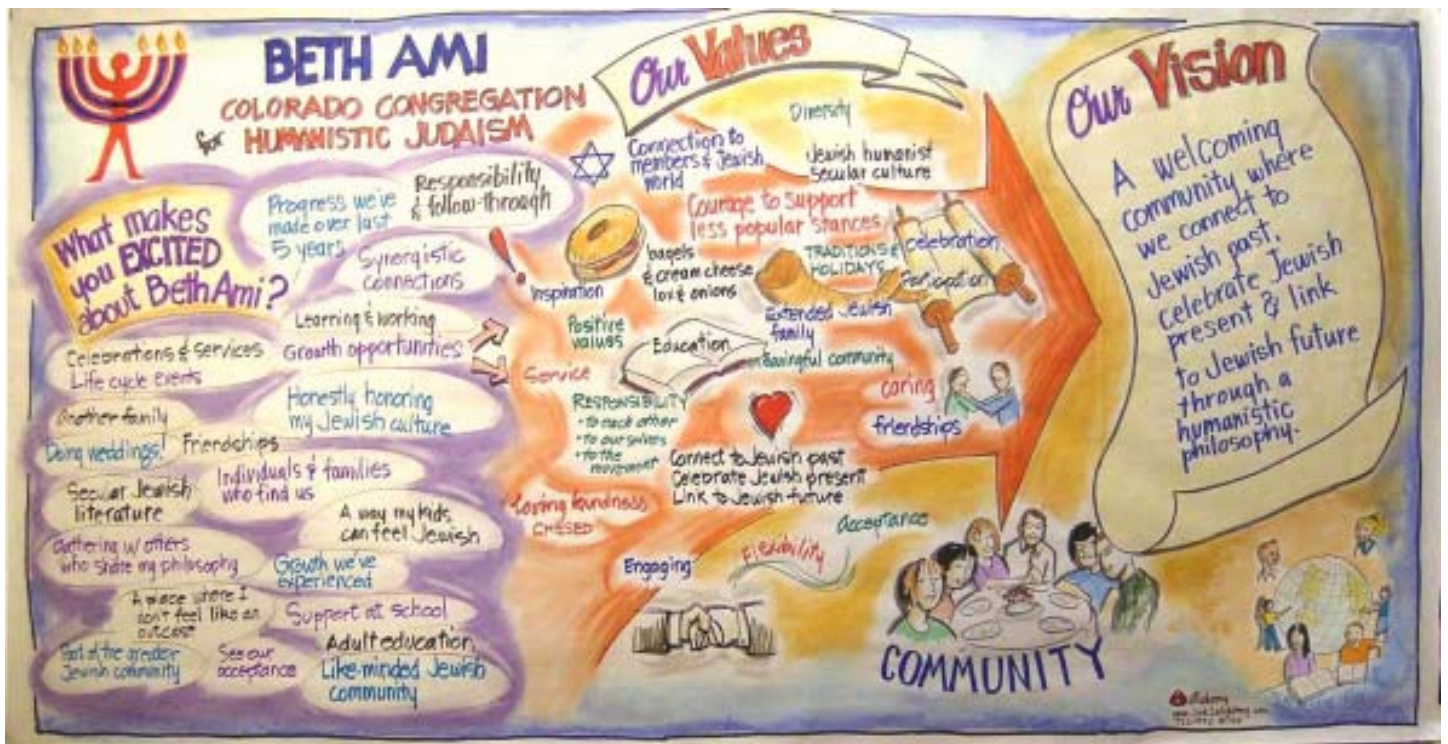 BETH AMI
COLORADO CONGREGATION
for HUMANISTIC JUDAISM
What makes
you EXCITED
about Beth Ami?
Progress we've
made over last
5 years
Responsibility
& follow-through
Synergistic
connections
Learning & working
Growth opportunities
Celebrations & services
Life cycle events
Honestly honoring
my Jewish culture
Another family
Doing weddings!
Friendships
Individuals & families
who find us
Secular Jewish
literature
A way my kids
can feel Jewish
Gathering w/ others
who share my philosophy
Growth we've
experienced
A place where I
don't feel like an
outcast
Support at school
Part of the greater
Jewish community
See our
acceptance
Adult education
Like-minded Jewish
community
Our Values
Diversity
Connection to
members & Jewish
world
Jewish humanist
secular culture
Courage to support
less popular stances
!
Inspiration
bagels
& cream cheese
lox & onions
TRADITIONS &
HOLIDAYS
celebration
Participation
Extended Jewish
family
Positive
values
Education
community
Service
RESPONSIBILITY
• to each other
• to ourselves
• to the
movement
caring
friendships
Connect to Jewish past
Celebrate Jewish present
Link to Jewish future
Loving kindness
CHESED
Acceptance
Flexibility
Engaging
COMMUNITY
Our Vision
A welcoming
community where
we connect to
Jewish past,
celebrate Jewish
present & link
to Jewish future
through a
humanistic
philosophy.